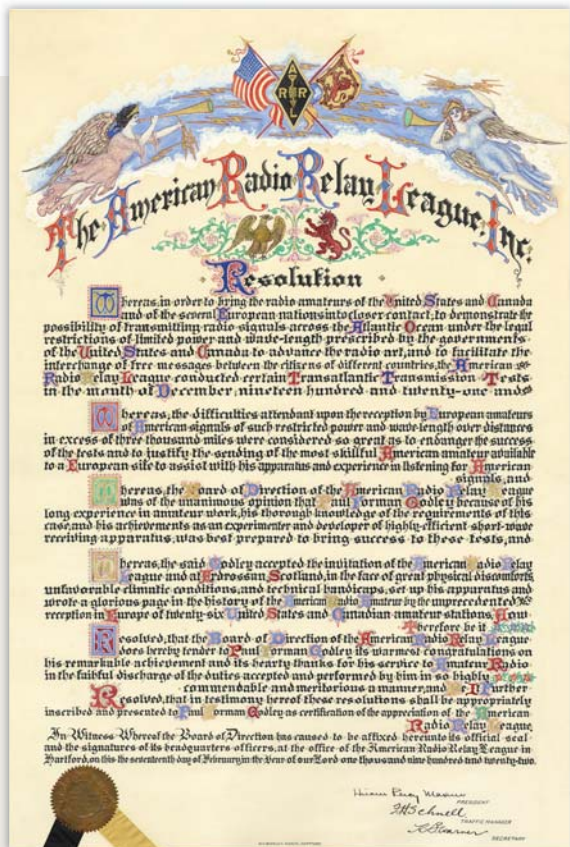 A
R R
L
The American Radio Relay League, Inc.
Resolution
Whereas, in order to bring the radio amateurs of the United States and Canada
and of the several European nations into closer contact; to demonstrate the
possibility of transmitting radio signals across the Atlantic Ocean under the legal
restrictions of limited power and wave-length prescribed by the governments
of the United States and Canada to advance the radio art, and to facilitate the
interchange of free messages between the citizens of different countries, the American
Radio Relay League conducted certain Transatlantic Transmission Tests
in the month of December, nineteen hundred and twenty-one and
Whereas, the difficulties attendant upon the reception by European amateurs
of American signals of such restricted power and wave-length over distances
in excess of three thousand miles were considered so great as to endanger the success
of the tests and to justify the sending of the most skillful American amateur available
to a European site to assist with his apparatus and experience in listening for American
signals, and
Whereas, the Board of Direction of the American Radio Relay League
was of the unanimous opinion that Paul Forman Godley because of his
long experience in amateur work, his thorough knowledge of the requirements of this
case, and his achievements as an experimenter and developer of highly-efficient short-wave
receiving apparatus, was best prepared to bring success to these tests, and
Whereas, the said Godley accepted the invitation of the American Radio Relay
League and at Ardrossan, Scotland, in the face of great physical discomforts,
unfavorable climatic conditions, and technical handicaps, set up his apparatus and
wrote a glorious page in the history of the American Radio Amateur by the unprecedented
reception in Europe of twenty-six United States and Canadian amateur stations, Now
Therefore be it
Resolved, that the Board of Direction of the American Radio Relay League
does hereby tender to Paul Forman Godley its warmest congratulations on
his remarkable achievement and its hearty thanks for his service to Amateur Radio
in the faithful discharge of the duties accepted and performed by him in so highly
commendable and meritorious a manner, and Be It Further
Resolved, that in testimony hereof these resolutions shall be appropriately
inscribed and presented to Paul Forman Godley as certification of the appreciation of the American
Radio Relay League.
In Witness Whereof the Board of Direction has caused to be affixed hereunto its official seal
and the signatures of its headquarters officers, at the office of the American Radio Relay League in
Hartford, on this the seventeenth day of February in the Year of our Lord one thousand nine hundred and twenty-two.
Hiram Percy Maxim
PRESIDENT
F H Schnell
TRAFFIC MANAGER
K B Warner
SECRETARY